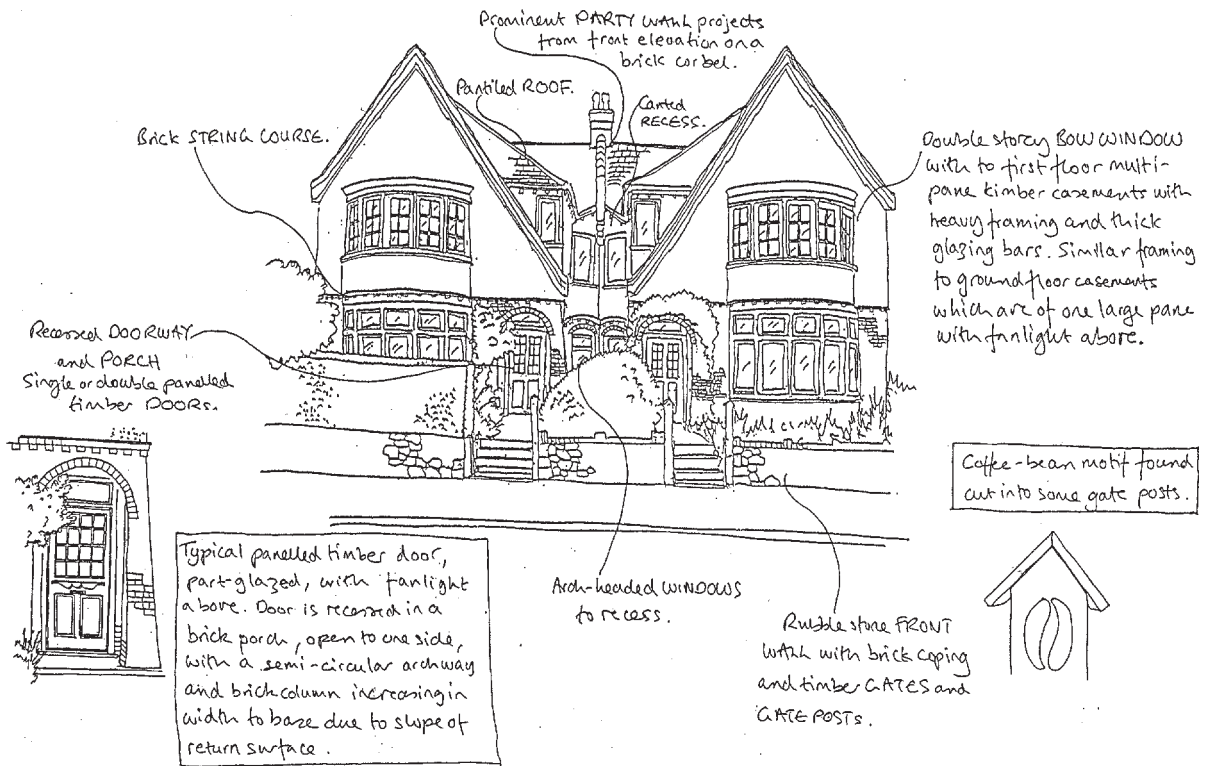 Prominent PARTY WALL projects
from front elevation on a
brick corbel.
Pantiled ROOF.
Canted
RECESS.
Brick STRING COURSE.
Double storey BOW WINDOW
with to first floor multi-
pane timber casements with
heavy framing and thick
glazing bars. Similar framing
to ground floor casements
which are of one large pane
with fanlight above.
Recessed DOORWAY
and PORCH
Single or double panelled
timber DOORS.
Coffee-bean motif found
cut into some gate posts.
Typical panelled timber door,
part-glazed, with fanlight
above. Door is recessed in a
brick porch, open to one side,
with a semi-circular archway
and brick column increasing in
width to base due to slope of
return surface.
Arch-headed WINDOWS
to recess.
Rubble stone FRONT
WALL with brick coping
and timber GATES and
GATE POSTS.